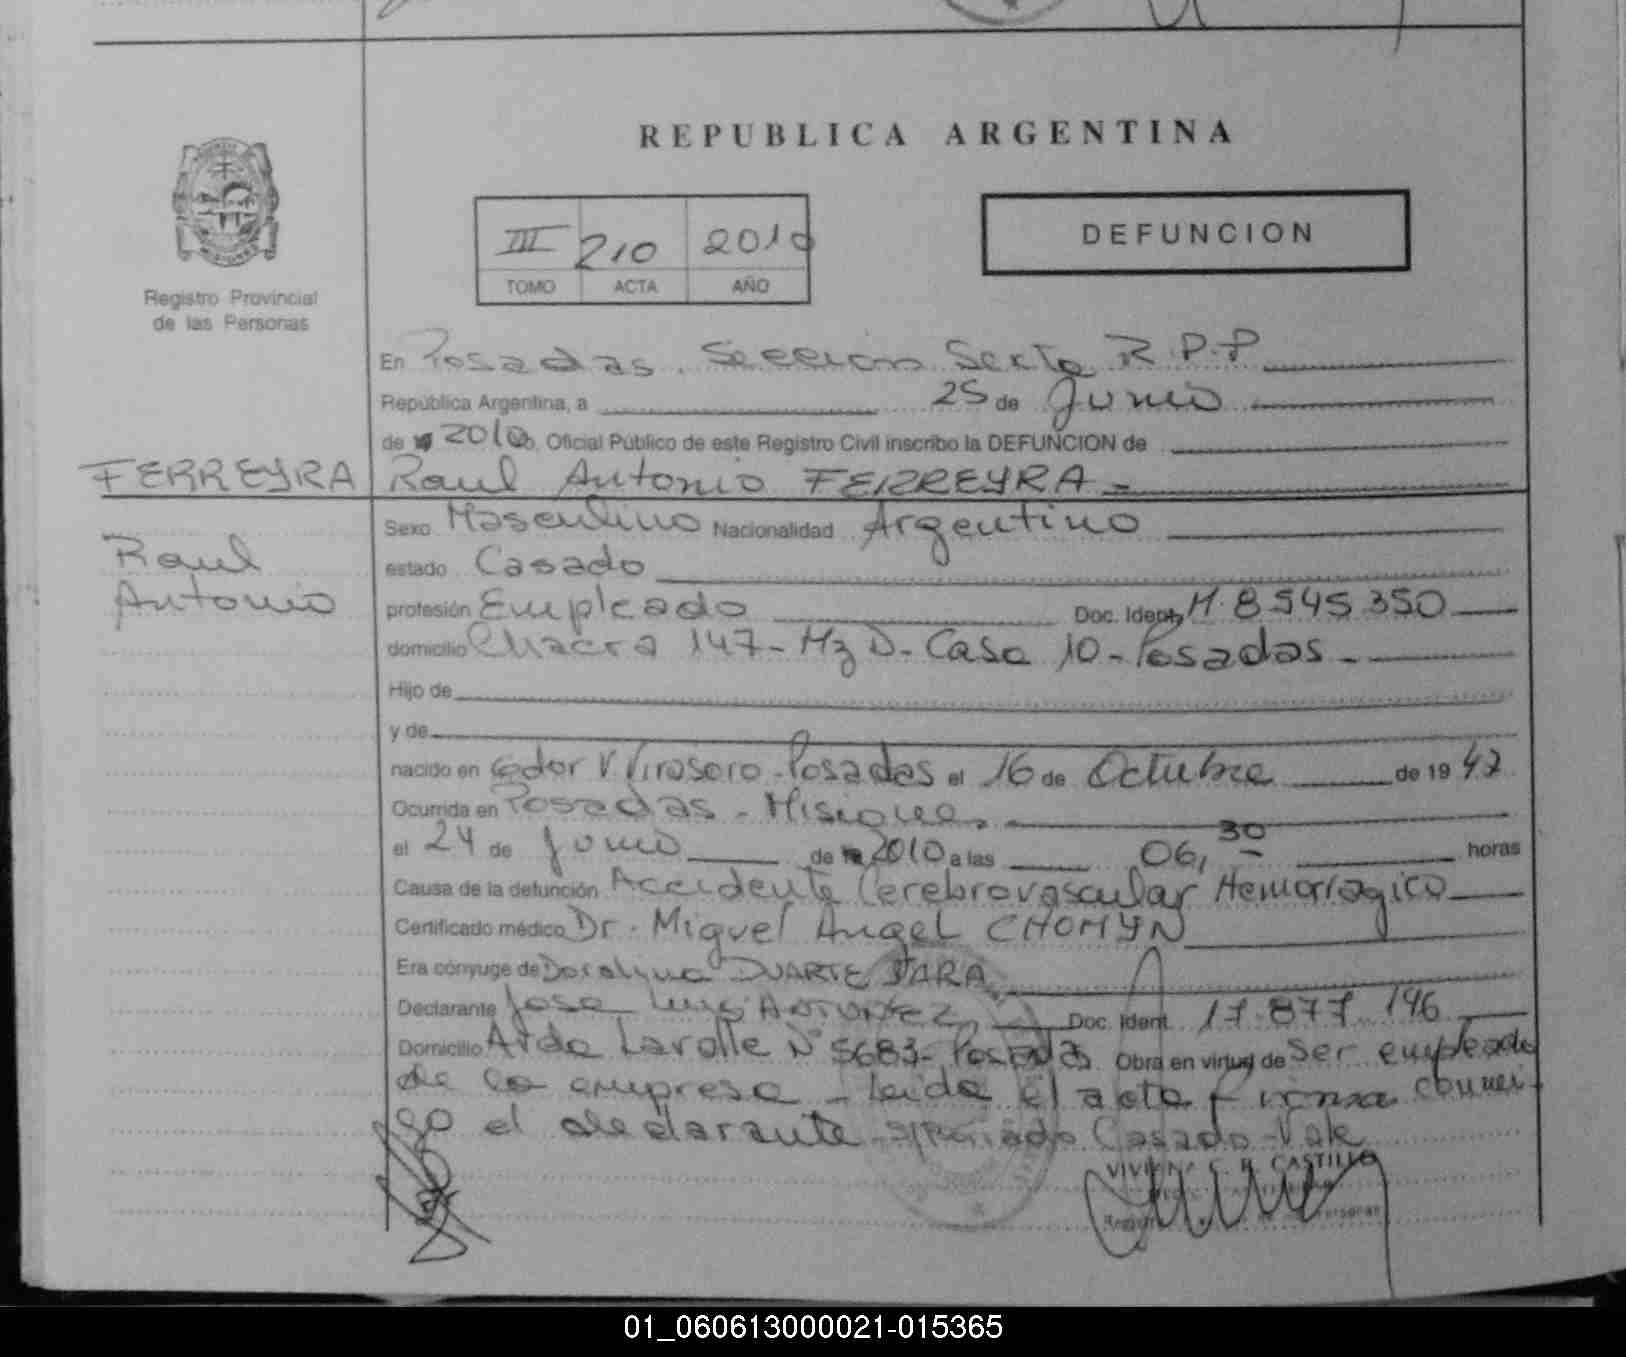 REPUBLICA ARGENTINA
III 210 2010
TOMO ACTA AÑO
DEFUNCION
Registro Provincial
de las Personas
En Posadas. Sección Sexta R.P.P
República Argentina, a 25 de Junio
de 2010, Oficial Público de este Registro Civil inscribo la DEFUNCION de
FERREYRA Raul Antonio FERREYRA-
Raul
Antonio
Sexo Masculino Nacionalidad Argentino
estado Casado
profesión Empleado Doc. Ident. M.8545.350
domicilio Chacra 147-Mz D-Casa 10-Posadas-
Hijo de
y de
nacido en Gdor V. Virasoro-Posadas el 16 de Octubre de 19 47
Ocurrida en Posadas-Misiones
el 24 de Junio de 2010 a las 06,30 horas
Causa de la defunción Accidente Cerebrovascular Hemorragico
Certificado médico Dr. Miguel Angel CHOMYN
Era cónyuge de DUARTE JARA
Declarante Jose Luis Doc. Ident. 17.877.146
Domicilio Avda Lavalle N° 5683-Posadas Obra en virtud de Ser empleado
de la empresa - leida el acta firma conmi-
go el declarante Casado-Vale
VIVIANA C. R. CASTILLO
01_060613000021-015365